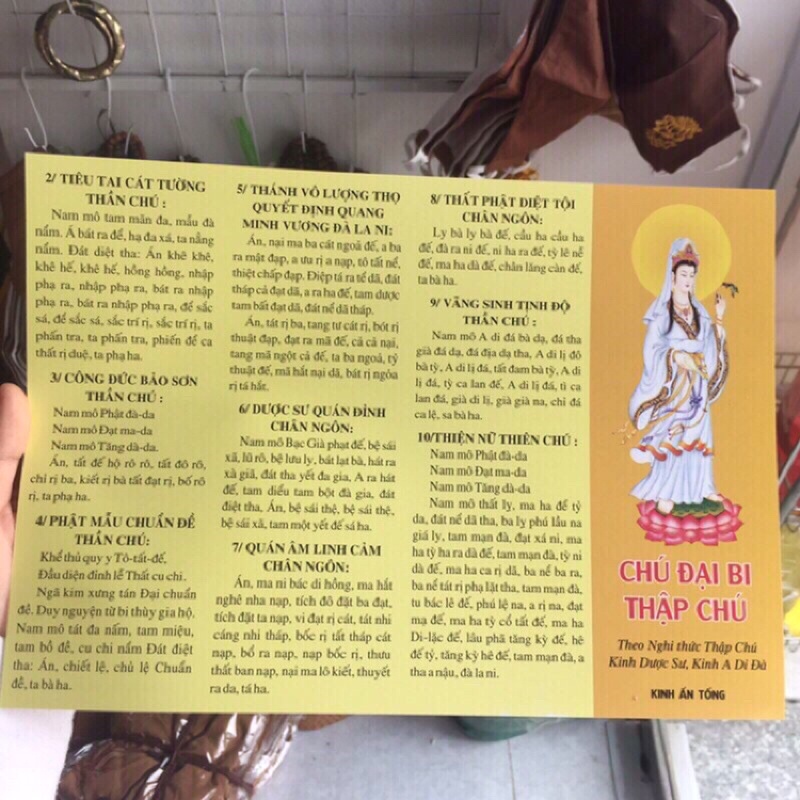 2/ TIÊU TAI CÁT TƯỜNG
THẦN CHÚ :
Nam mô tam mãn đa, mẫu đà
nẩm. Á bát ra đế, hạ đa xá, ta nẳng
nẩm. Đát điệt tha: Án khê khê,
khê hế, khê hế, hồng hồng, nhập
phạ ra, nhập phạ ra, bát ra nhập
phạ ra, bát ra nhập phạ ra, để sắc
sá, để sắc sá, sắc trí rị, sắc trí rị, ta
phấn tra, ta phấn tra, phiến để ca
thất rị duệ, ta phạ ha.
3/ CÔNG ĐỨC BẢO SƠN
THẦN CHÚ :
Nam mô Phật đà-da
Nam mô Đạt ma-da
Nam mô Tăng dà-da.
Án, tất đế hộ rô rô, tất đô rô,
chỉ rị ba, kiết rị bà tất đạt rị, bố rô
rị, ta phạ ha.
4/ PHẬT MẪU CHUẨN ĐỀ
THẦN CHÚ:
Khể thủ quy y Tô-tất-đế,
Đầu diện đỉnh lễ Thất cu chi.
Ngã kim xưng tán Đại chuẩn
đề. Duy nguyện từ bi thùy gia hộ.
Nam mô tát đa nẩm, tam miệu,
tam bồ đề, cu chi nẩm Đát điệt
tha: Án, chiết lệ, chủ lệ Chuẩn
đề, ta bà ha.
5/ THÁNH VÔ LƯỢNG THỌ
QUYẾT ĐỊNH QUANG
MINH VƯƠNG ĐÀ LA NI:
Án, nại ma ba cát ngoã đế, a ba
ra mật đạp, a ưu rị a nạp, tô tất nể,
thiệt chấp đạp. Điệp tá ra tể dã, đát
tháp cả đạt dã, a ra ha đế, tam dược
tam bất đạt dã, đát nể dã tháp.
Án, tát rị ba, tang tư cát rị, bót rị
thuật đạp, đạt ra mã đế, cả cả nại,
tang mã ngột cả đế, ta ba ngoả, tỷ
thuật đế, mã hắt nại dã, bát rị ngõa
rị tá hắt.
6/ DƯỢC SƯ QUÁN ĐỈNH
CHÂN NGÔN:
Nam mô Bạc Già phạt đế, bệ sái
xã, lũ rô, bệ lưu ly, bát lạt bà, hát ra
xà giã, đát tha yết đa gia, A ra hát
đế, tam diểu tam bột đà gia, đát
điệt tha, Án, bệ sái thệ, bệ sái thệ,
bệ sái xã, tam một yết đế sá ha.
7/ QUÁN ÂM LINH CẢM
CHÂN NGÔN:
Án, ma ni bác di hồng, ma hắt
nghê nha nạp, tích đô đặt ba đạt,
tích đặt ta nạp, vi đạt rị cát, tát nhi
cáng nhi tháp, bốc rị tất tháp cát
nạp, bổ ra nạp, nạp bốc rị, thưu
thất ban nạp, nại ma lô kiết, thuyết
ra da, tá ha.
8/ THẤT PHẬT DIỆT TỘI
CHÂN NGÔN:
Ly bà ly bà đế, cầu ha cầu ha
đế, đà ra ni đế, ni ha ra đế, tỳ lê nễ
đế, ma ha dà đế, chân lăng càn đế,
ta bà ha.
9/ VÃNG SINH TỊNH ĐỘ
THẦN CHÚ :
Nam mô A di đá bà dạ, đá tha
già đá dạ, đá địa dạ tha, A di lị đô
bà tỳ, A di lị đá, tất đam bà tỳ, A di
lị đá, tỳ ca lan đế, A di lị đá, tì ca
lan đá, già di lị, già già na, chỉ đá
ca lệ, sa bà ha.
10/THIỆN NỮ THIÊN CHÚ :
Nam mô Phật đà-da
Nam mô Đạt ma-da
Nam mô Tăng dà-da
Nam mô thất ly, ma ha đề tỷ
da, đát nể dã tha, ba lỵ phú lầu na
giá lỵ, tam mạn đà, đạt xá ni, ma
ha tỳ ha ra dà đế, tam mạn đà, tỳ ni
dà đế, ma ha ca rị dã, ba nể ba ra,
ba nể tát rị phạ lặt tha, tam mạn đà,
tu bác lê đế, phú lệ na, a rị na, đạt
mạ đế, ma ha tỳ cổ tất đế, ma ha
Di-lặc đế, lâu phả tăng kỳ đế, hê
đế tỷ, tăng kỳ hê đế, tam mạn đà, a
tha a nậu, đà la ni.
CHÚ ĐẠI BI
THẬP CHÚ
Theo Nghi thức Thập Chú
Kinh Dược Sư, Kinh A Di Đà
KINH ẤN TỐNG